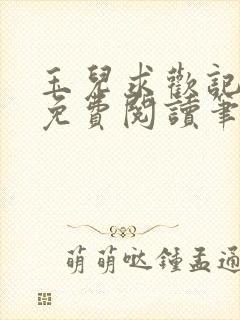 玉兒求歡記
免費閱讀筆
萌萌哒鍾孟通